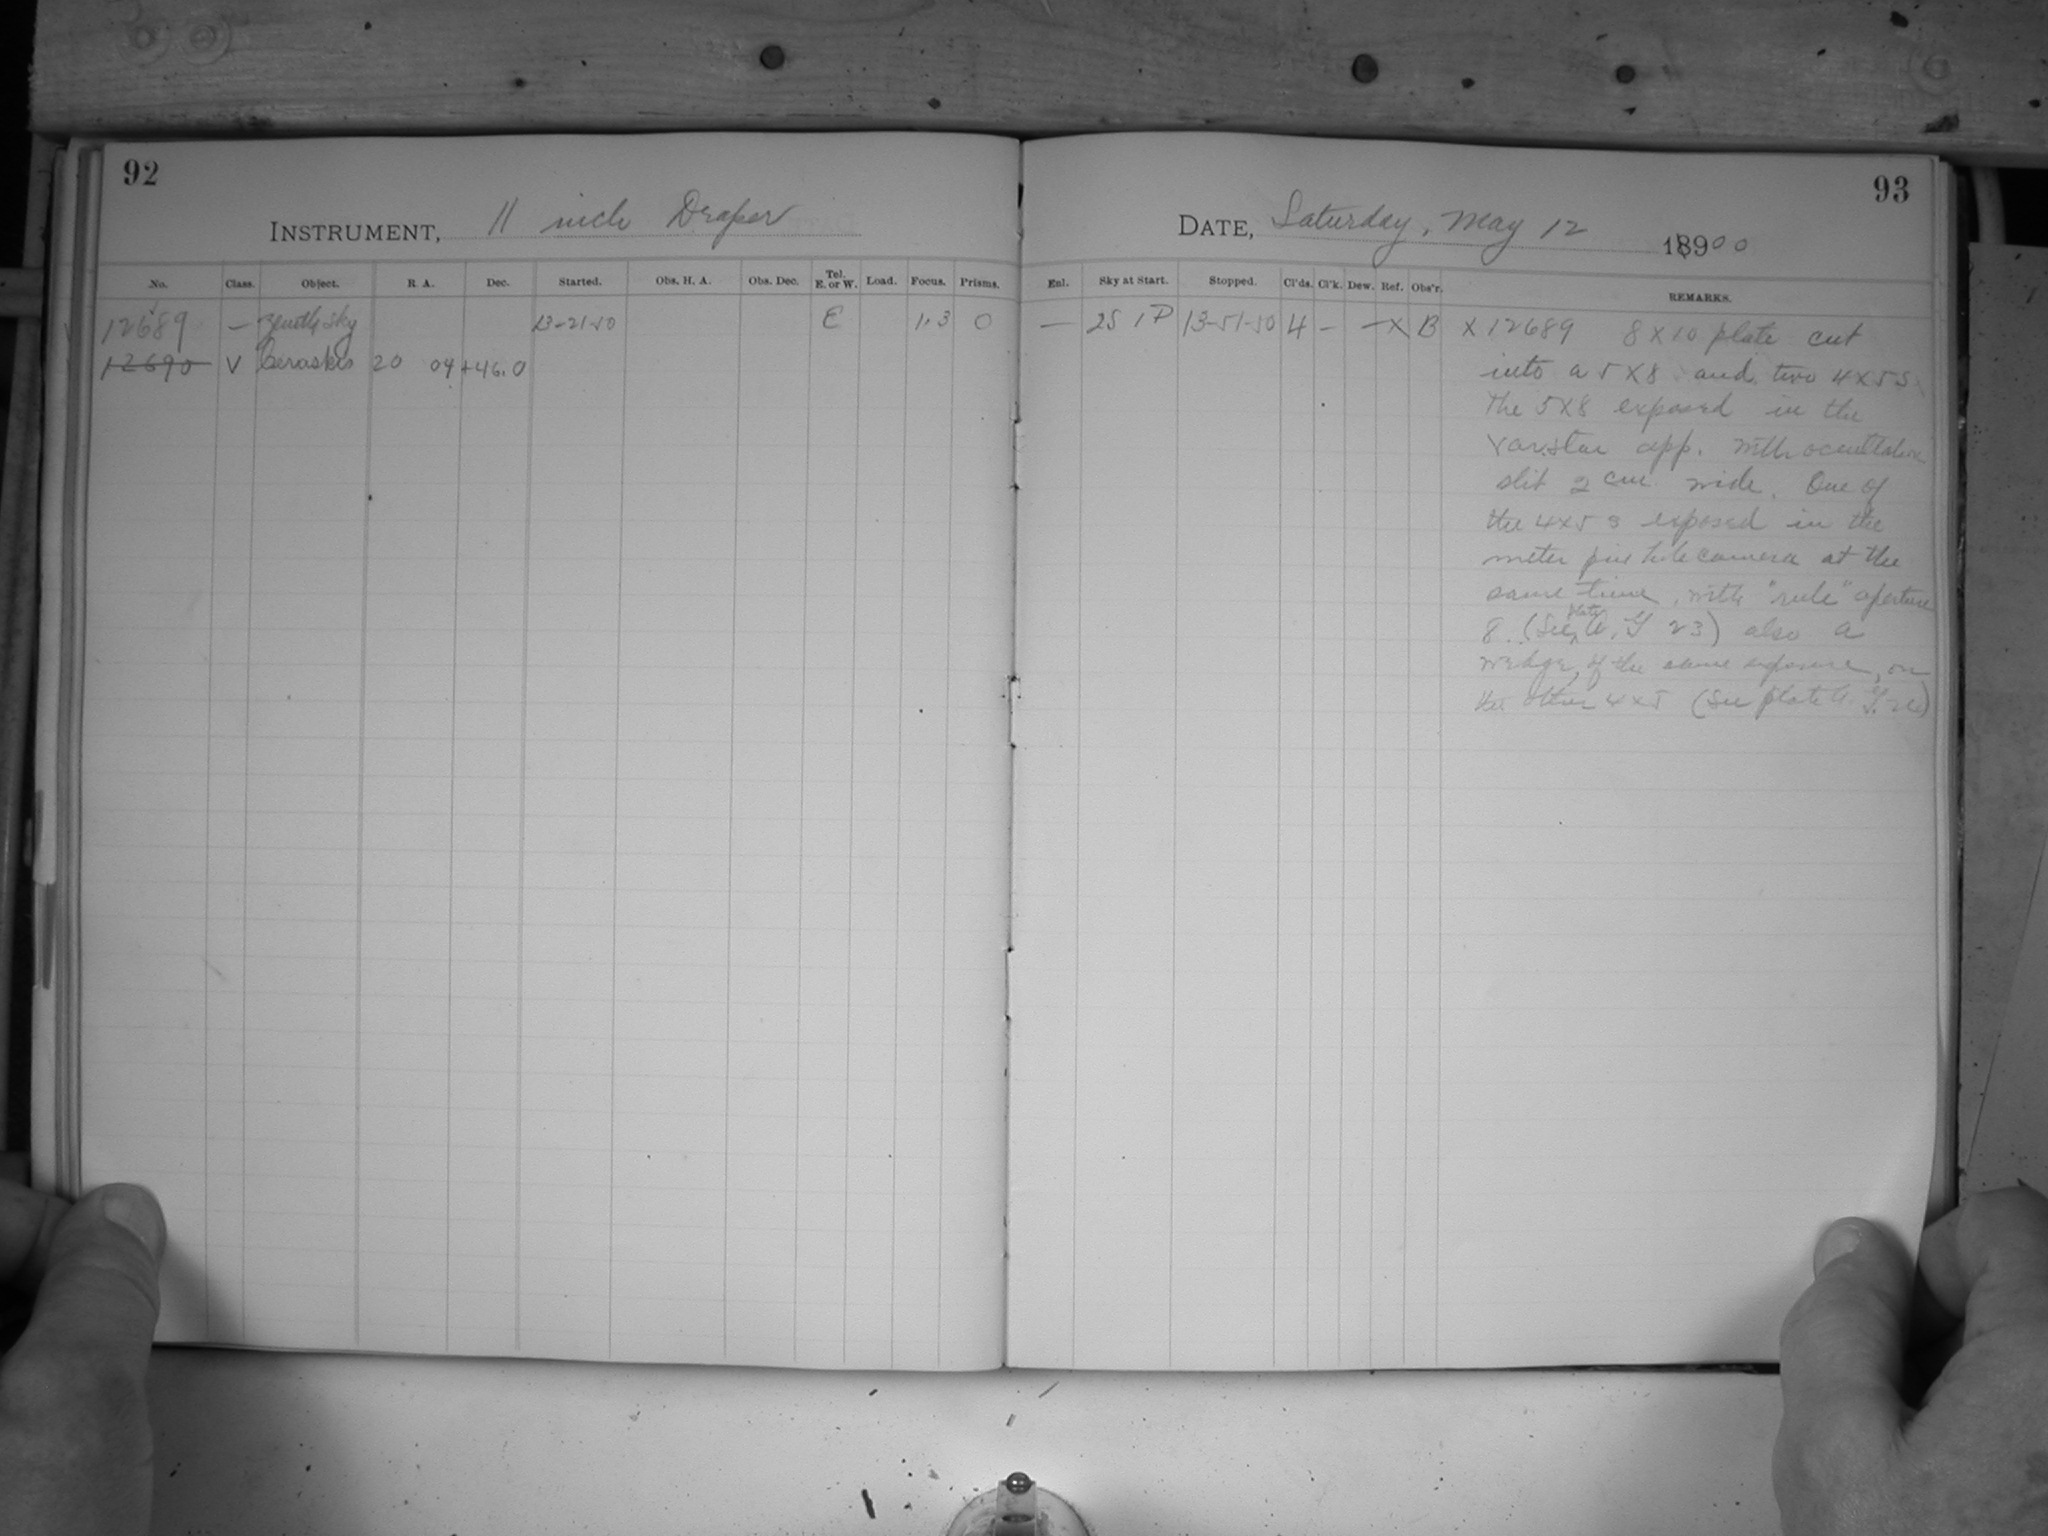 92
INSTRUMENT, 11 inch Draper
No. Class. Object. R. A. Dec. Started. Obs. H. A. Obs. Dec. Tel. E. or W. Load. Focus. Prisms.
12689 — Zenith Sky 13-21-50 E 1.3 0
12690 V 20 04 +46.0
93
DATE, Saturday, May 12 1890 0
Enl. Sky at Start. Stopped. Cl'ds. Cl'k. Dew. Ref. Obs'r. REMARKS.
— 2S 1P 13-51-50 4 - - X B X 12689 8 X 10 plate cut
into a 5 X 8 and two 4 X 5s
The 5X8 exposed in the
var. star app. with occultation
slit 2 cm wide. One of
the 4x5 s exposed in the
meter pin hole camera at the
same time, with "rule" aperture
8. (See plate 23) also a
wedge, of the same exposure, on
the other 4x5 (See plate